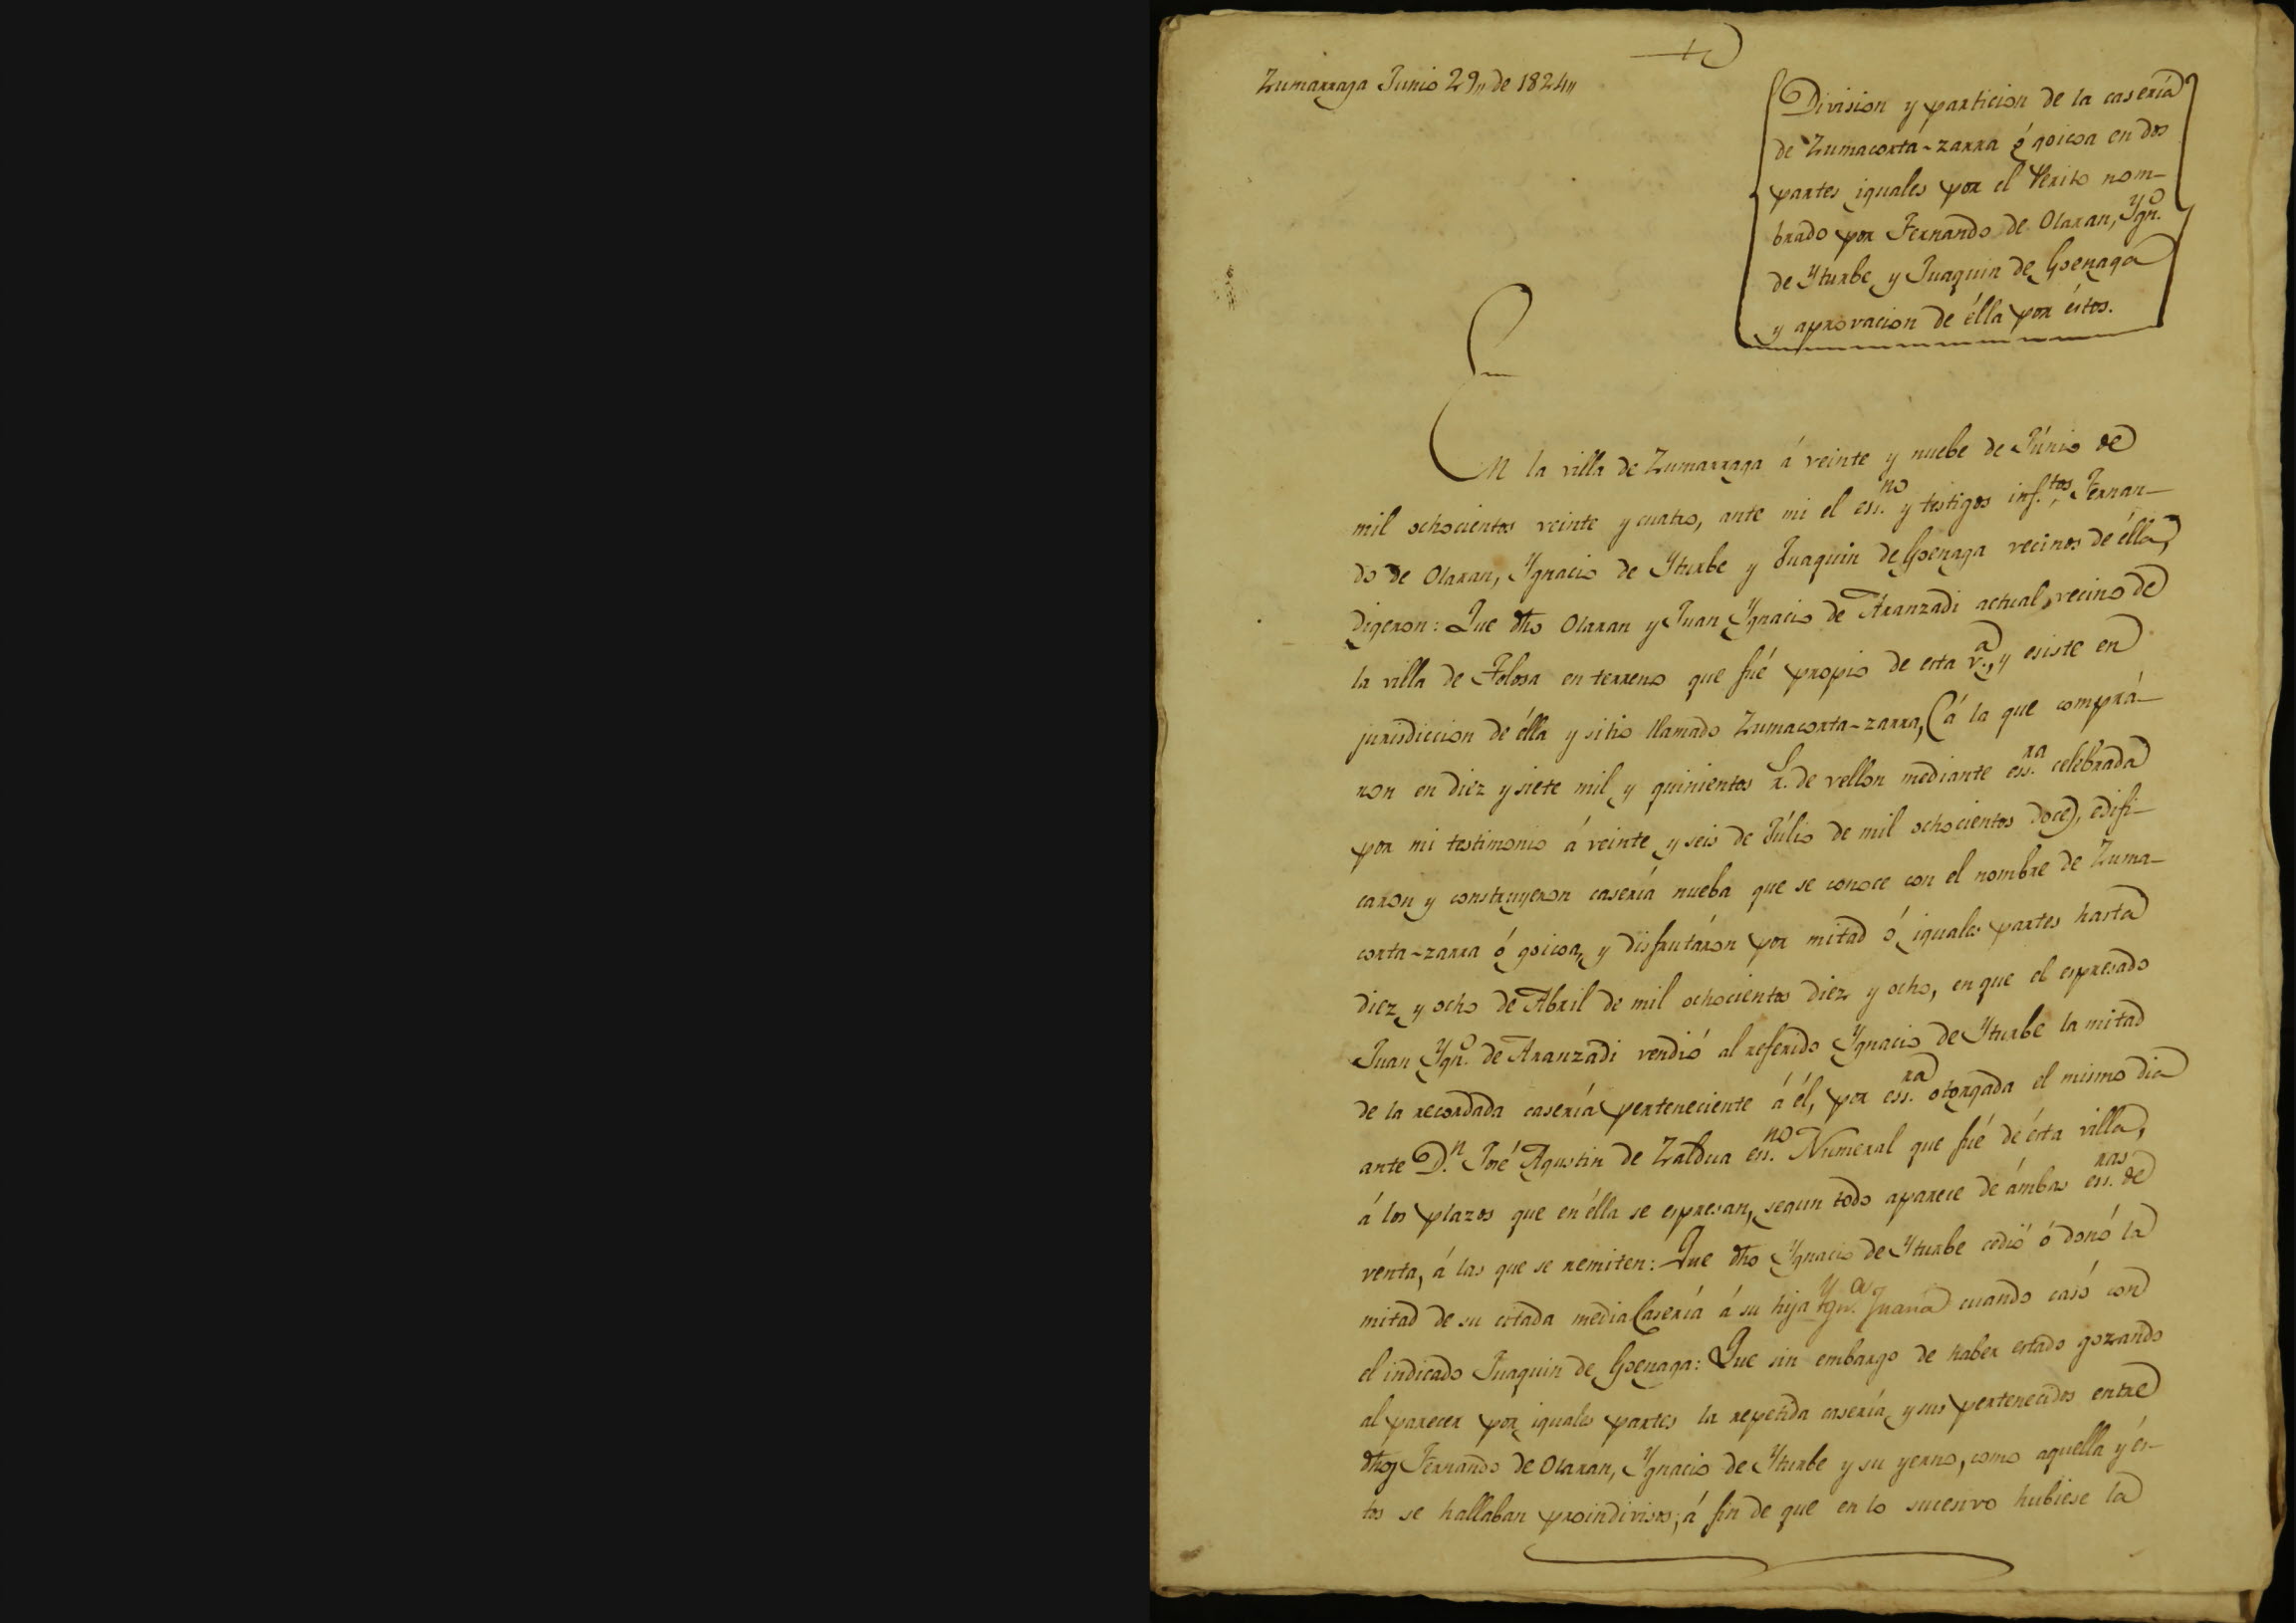 Zumarraga Junio 29,, de 1824,,
Division y particion de la casería
de Zumacorta-zarra ó goicoa en dos
partes iguales por el Perito nom-
brado por Fernando de Olaran, Ygn.º
de Yturbe y Juaquin de Goenaga
y aprovacion de élla por éstos.
En la villa de Zumarraga á veinte y nuebe de Júnio de
mil ochocientos veinte y cuatro, ante mi el ess.no y testigos inf.tos Fernan-
do de Olaran, Ygnacio de Yturbe y Juaquin de Goenaga vecinos de élla,
digeron: Que dho Olaran y Juan Ygnacio de Aranzadi actual vecino de
la villa de Tolosa en terreno que fué propio de esta v.a, y esiste en
jurisdiccion de élla y sitio llamado Zumacorta-zarra, (á la que comprá-
ron en diez y siete mil y quinientos r.s de vellon mediante ess.ra celebrada
por mi testimonio á veinte y seis de Júlio de mil ochocientos doce), edifi-
caron y construyeron casería nueba que se conoce con el nombre de Zuma-
corta-zarra ó goicoa, y disfrutáron por mitad ó iguales partes hasta
diez y ocho de Abril de mil ochocientos diez y ocho, en que el espresado
Juan Ygn.º de Aranzadi vendió al referido Ygnacio de Yturbe la mitad
de la recordada casería perteneciente á él, por ess.ra otorgada el mismo dia
ante D.n José Agustin de Zaldua ess.no Numeral que fué de ésta villa,
á los plazos que en élla se espresan, segun todo aparece de ámbas ess.ras de
venta, á las que se remiten: Que dho Ygnacio de Yturbe cedió ó donó la
mitad de su citada media Casería á su hija Ygn.a Juana cuando casó con
el indicado Juaquin de Goenaga: Que sin embargo de haber estado gozando
al parecer por iguales partes la repetida casería y sus pertenecidos entre
dhos Fernando de Olaran, Ygnacio de Yturbe y su yerno, como aquella y és-
tos se hallaban proindivisos; á fin de que en lo sucesivo hubiese la